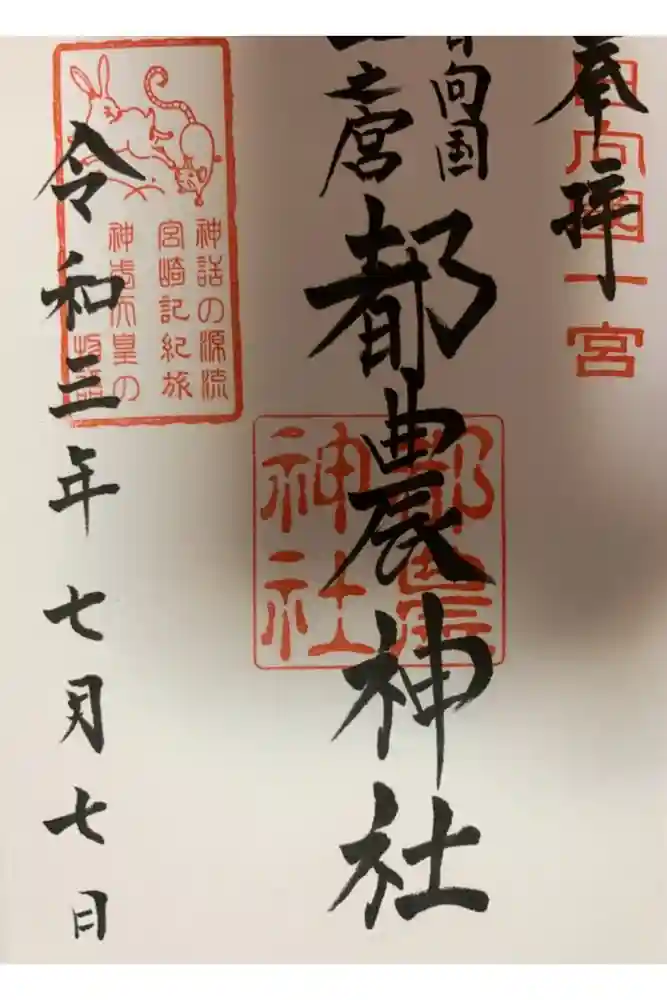 奉拝
日向國一宮
日向国
一之宮
都農神社
都農
神社
神話の源流
宮崎記紀旅
神武天皇の
物語
令和三年七月七日